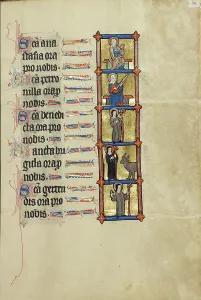 Sca ana
stasia ora
pro nobis.
Sca petro
nilla ora p
nobis.
Sca bene
dicta ora pro
nobis.
Sancta bri
gida ora p
nobis.
Sca gertru
dis ora pro
nobis.